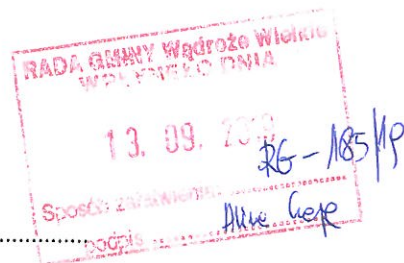 RADA GMINY Wądroże Wielkie
WPŁYNĘŁO DNIA
13. 09. 2019
RG - 185/19
Sposób załatwienia
podpis